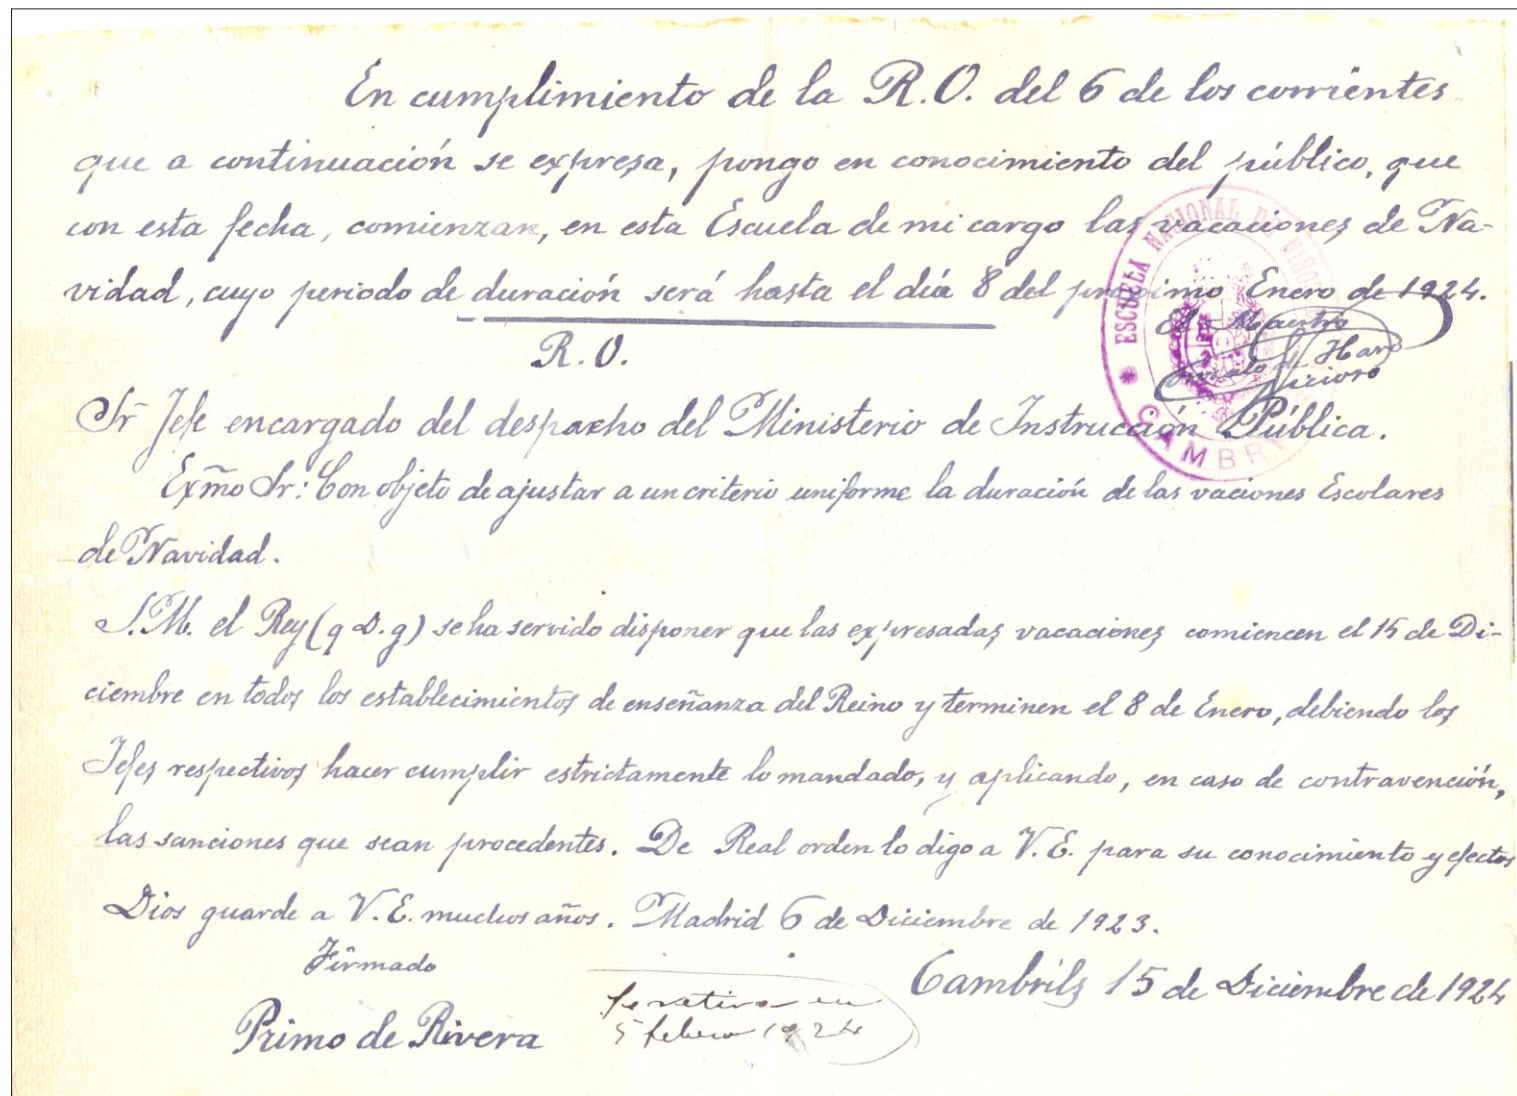 En cumplimiento de la R.O. del 6 de los corrientes
que a continuación se expresa, pongo en conocimiento del público, que
con esta fecha, comienzan, en esta Escuela de mi cargo las vacaciones de Na-
vidad, cuyo periodo de duración será hasta el día 8 del próximo Enero de 1924.
El Maestro
Haro
ESCUELA NACIONAL DE NIÑOS
CAMBRILS
R.O.
Sr Jefe encargado del despacho del Ministerio de Instrucción Pública.
Exmo Sr: Con objeto de ajustar a un criterio uniforme la duración de las vaciones Escolares
de Navidad.
S.M. el Rey (q D. g) se ha servido disponer que las expresadas vacaciones comiencen el 15 de Di-
ciembre en todos los establecimientos de enseñanza del Reino y terminen el 8 de Enero, debiendo los
Jefes respectivos hacer cumplir estrictamente lo mandado, y aplicando, en caso de contravención,
las sanciones que sean procedentes. De Real orden lo digo a V.E. para su conocimiento y efectos
Dios guarde a V.E. muchos años. Madrid 6 de Diciembre de 1923.
Firmado
Primo de Rivera
se retira en
5 febrero 1924
Cambrils 15 de Diciembre de 1924